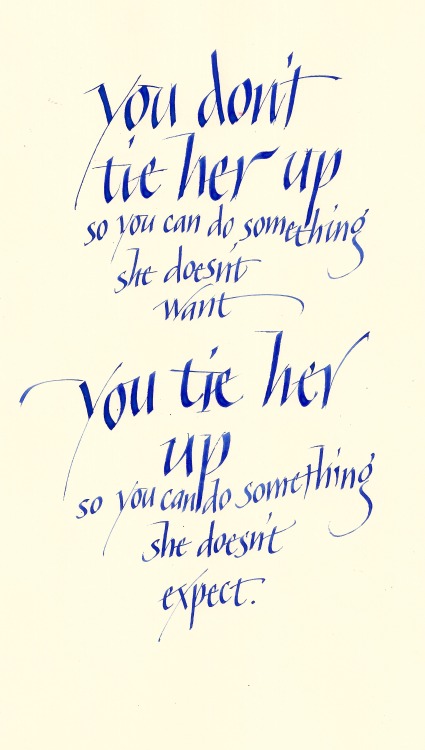 you don't
tie her up
so you can do something
she doesn't
want
you tie her
up
so you can do something
she doesn't
expect.